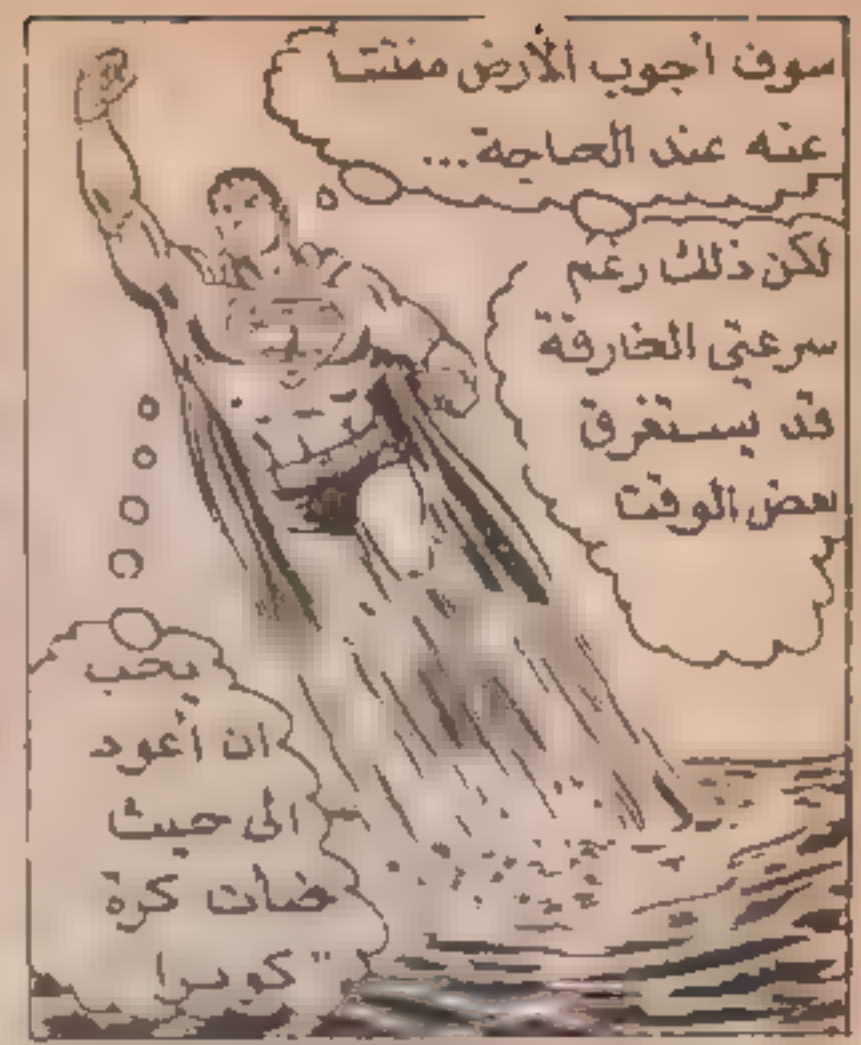 سوف أجوب الأرض مفتشا
عنه عند الحاجة...
لكن ذلك رغم
سرعتي الخارقة
قد يستغرق
بعض الوقت
يجب
ان أعود
الى حيث
كرة
"كوبرا